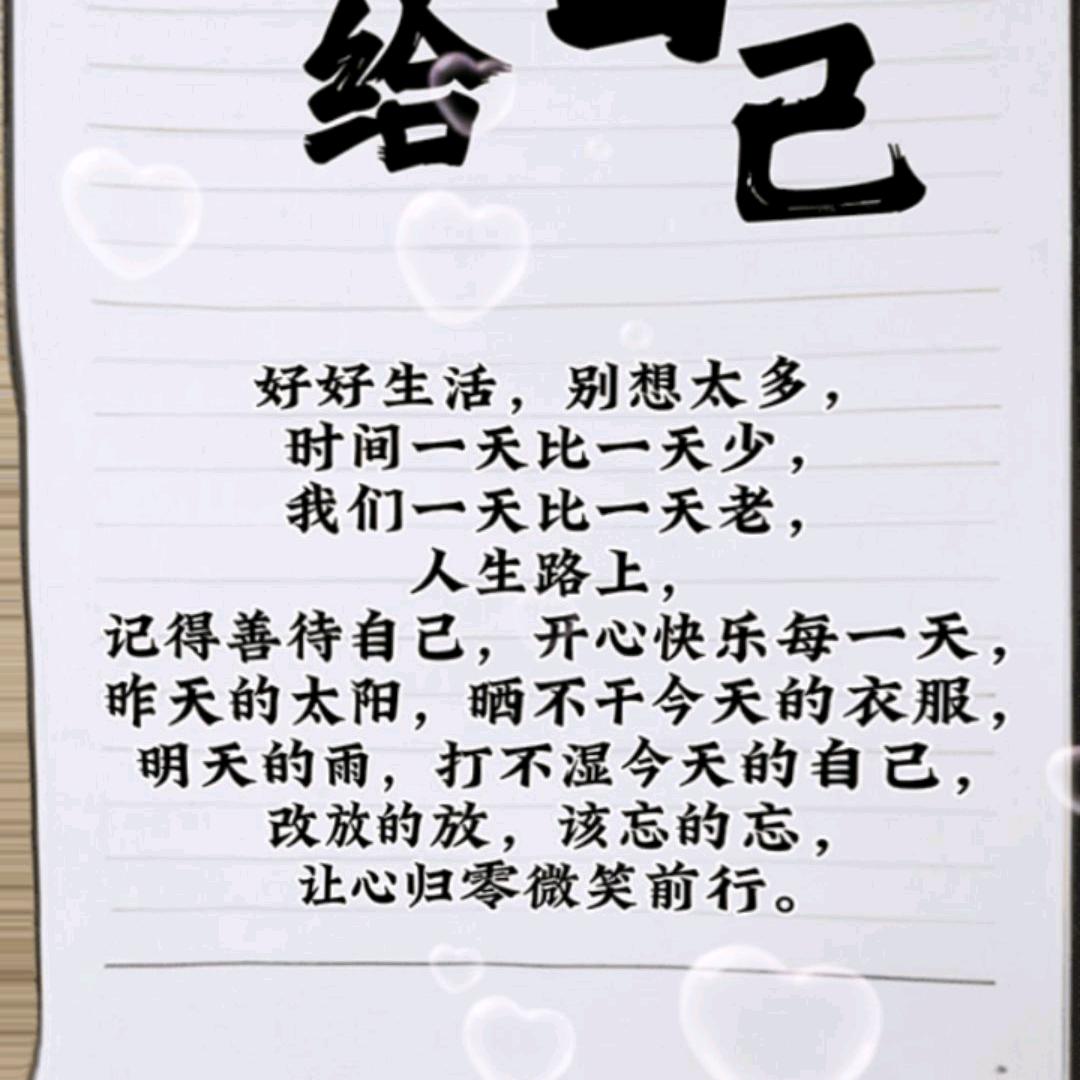 给
己
好好生活，别想太多，
时间一天比一天少，
我们一天比一天老，
人生路上，
记得善待自己，开心快乐每一天，
昨天的太阳，晒不干今天的衣服，
明天的雨，打不湿今天的自己，
改放的放，该忘的忘，
让心归零微笑前行。